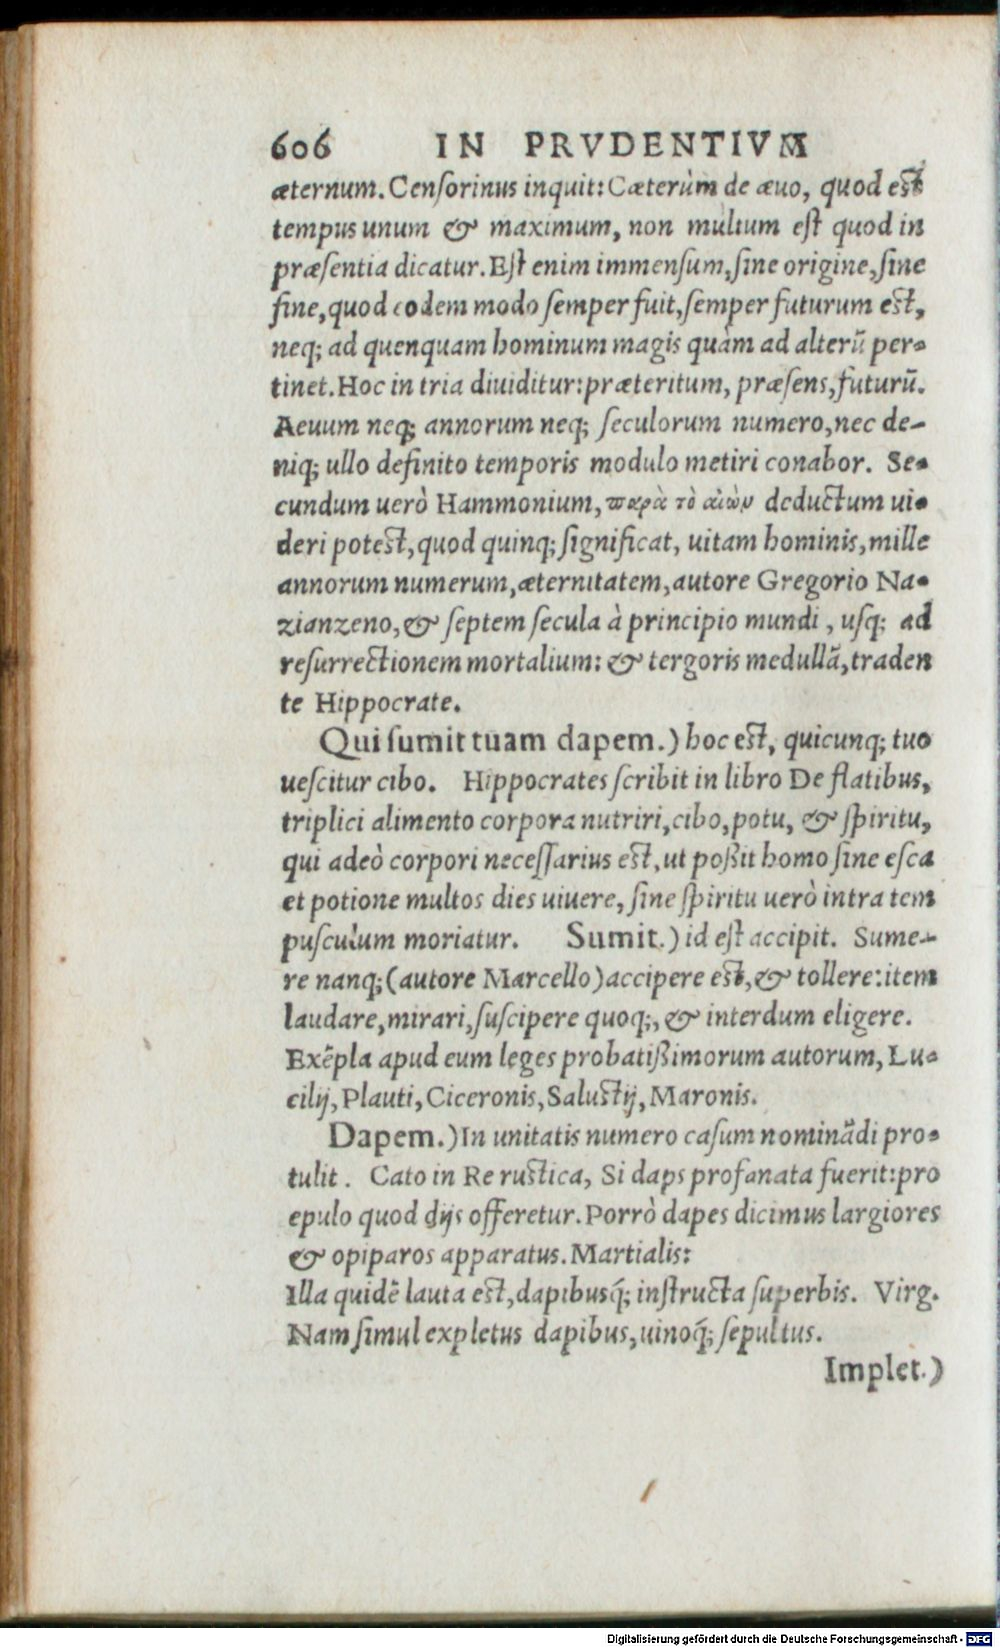 606 IN PRVDENTIVM
æternum. Cenſorinus inquit: Cæterùm de æuo, quod eſt
tempus unum & maximum, non multum eſt quod in
præſentia dicatur. Eſt enim immenſum, ſine origine, ſine
fine, quod eodem modo ſemper fuit, ſemper futurum eſt,
neq; ad quenquam hominum magis quàm ad alterū per-
tinet. Hoc in tria diuiditur: præteritum, præſens, futurū.
Aeuum neq; annorum neq; ſeculorum numero, nec de-
niq; ullo definito temporis modulo metiri conabor. Se-
cundum uerò Hammonium, παρὰ τὸ αἰὼν deductum ui-
deri poteſt, quod quinq; ſignificat, uitam hominis, mille
annorum numerum, æternitatem, autore Gregorio Na-
zianzeno, & ſeptem ſecula à principio mundi, uſq; ad
reſurrectionem mortalium: & tergoris medullā, traden
te Hippocrate.
Qui ſumit tuam dapem.) hoc eſt, quicunq; tuo
ueſcitur cibo. Hippocrates ſcribit in libro De flatibus,
triplici alimento corpora nutriri, cibo, potu, & ſpiritu,
qui adeò corpori neceſſarius eſt, ut poßit homo ſine eſca
et potione multos dies uiuere, ſine ſpiritu uerò intra tem
puſculum moriatur. Sumit.) id eſt accipit. Sume-
re nanq; (autore Marcello) accipere eſt, & tollere: item
laudare, mirari, ſuſcipere quoq;, & interdum eligere.
Exēpla apud eum leges probatißimorum autorum, Lu-
cilij, Plauti, Ciceronis, Saluſtij, Maronis.
Dapem.) In unitatis numero caſum nominādi pro-
tulit. Cato in Re ruſtica, Si daps profanata fuerit: pro
epulo quod dijs offeretur. Porrò dapes dicimus largiores
& opiparos apparatus. Martialis:
Illa quidē lauta eſt, dapibusq́; inſtructa ſuperbis. Virg.
Nam ſimul expletus dapibus, uinoq́; ſepultus.
Implet.)
Digitalisierung gefördert durch die Deutsche Forschungsgemeinschaft - DFG